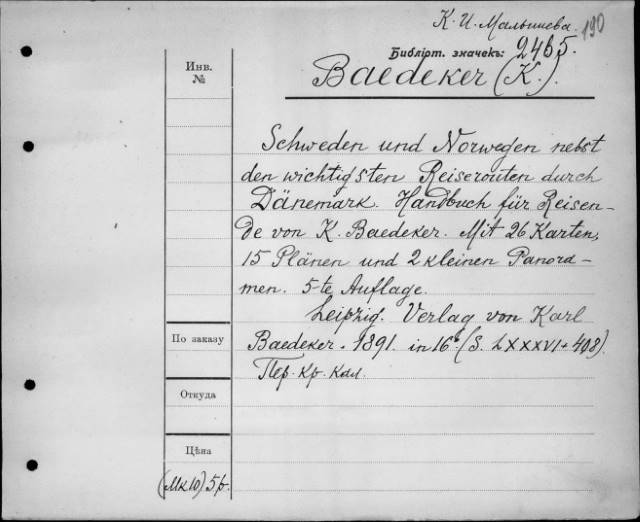 К. И. Малышева.
190
Библіот. значекъ: 2465.
Инв.
№
Baedeker (K.).
Schweden und Norwegen nebst
den wichtigsten Reiserouten durch
Dänemark. Handbuch für Reisen-
de von K. Baedeker. Mit 26 Karten,
15 Plänen und 2 kleinen Panora-
men. 5-te Auflage.
Leipzig. Verlag von Karl
По заказу
Baedeker. 1891. in 16º. (S. LXXXVI + 408).
Пер. кр. кал.
Откуда
Цѣна
(Mk 10) 5 р.